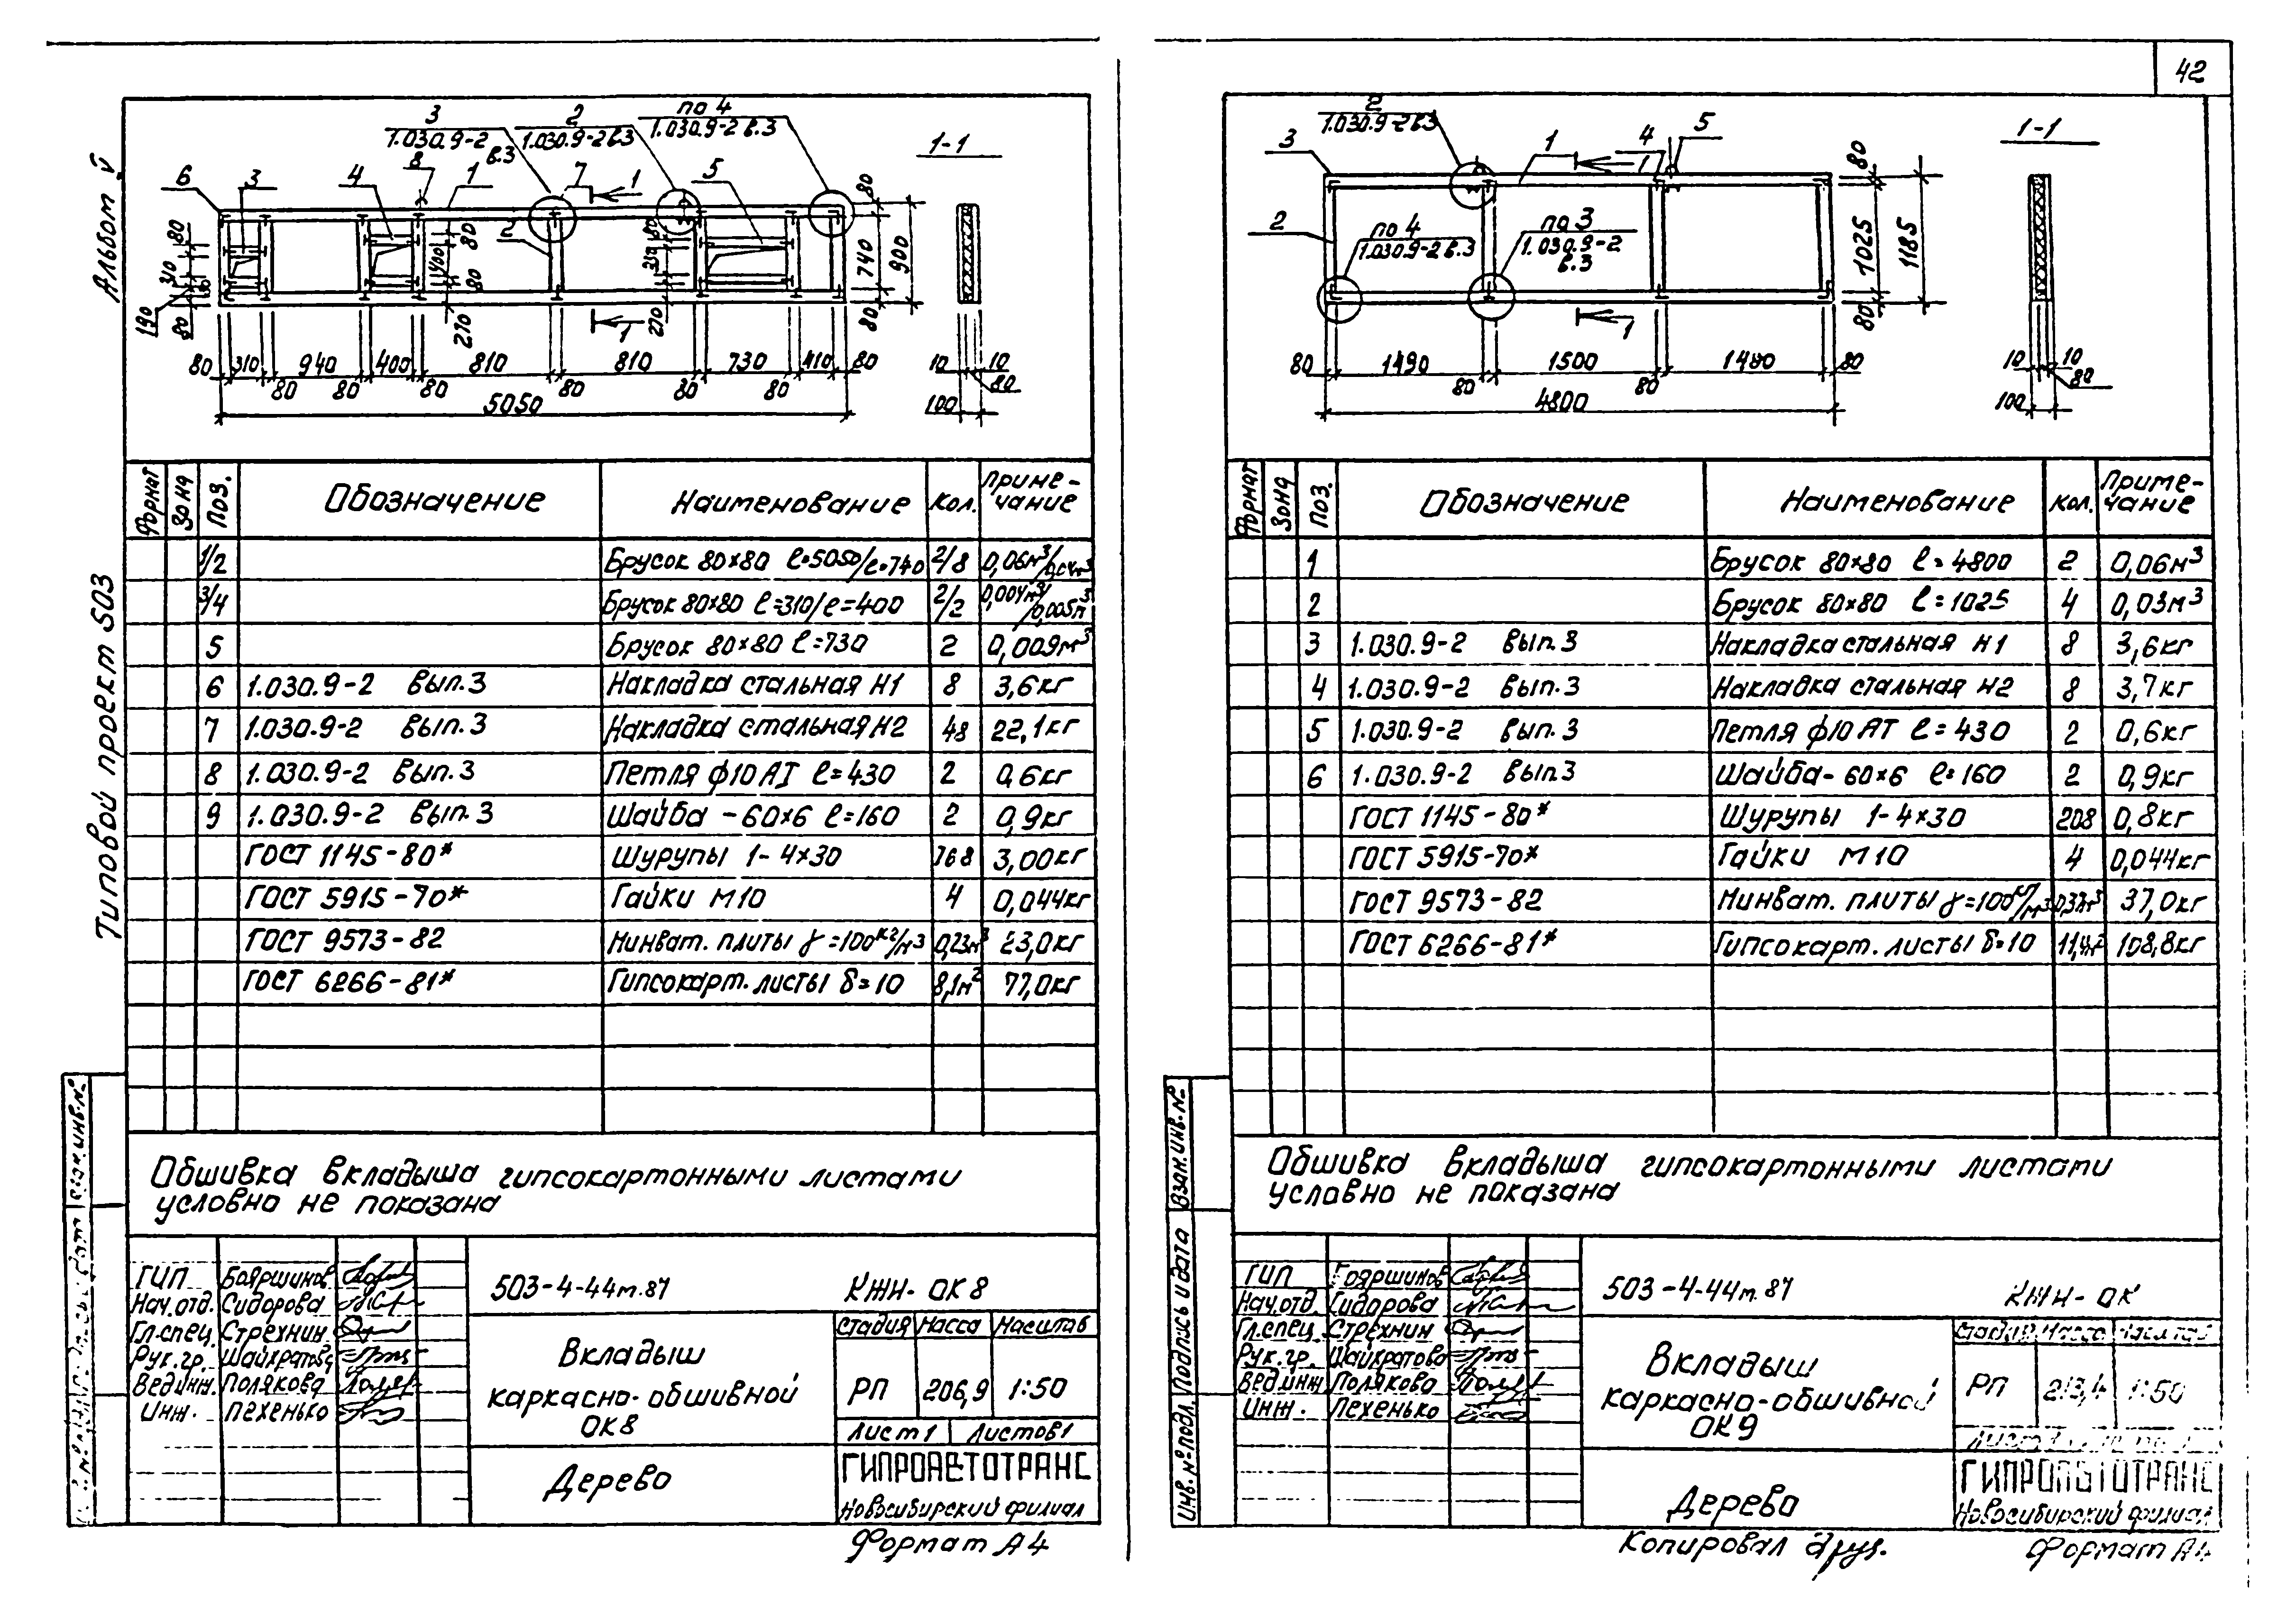 42
Альбом V
Типовой проект 503
3
1.030.9-2
в.3
2
1.030.9-2 в.3
по 4
1.030.9-2 в.3
1-1
6 3 4 8 1 7 1 5
2
80 310 190 80
80 400 80 270
80 270
80 740 900 80
1
80 310 940 400 810 810 730 410 80
80 80 80 80 80 80
5050
10 10
80
100
Формат Зона Поз. Обозначение Наименование Кол. Приме-
чание
1/2 Брусок 80×80 ℓ=5050/ℓ=740 2/8 0,06м³/0,04м³
3/4 Брусок 80×80 ℓ=310/ℓ=400 2/2 0,004м³/0,005м³
5 Брусок 80×80 ℓ=730 2 0,009м³
6 1.030.9-2 вып.3 Накладка стальная Н1 8 3,6кг
7 1.030.9-2 вып.3 Накладка стальная Н2 48 22,1кг
8 1.030.9-2 вып.3 Петля ф10 АI ℓ=430 2 0,6кг
9 1.030.9-2 вып.3 Шайба -60×6 ℓ=160 2 0,9кг
ГОСТ 1145-80* Шурупы 1-4×30 768 3,00кг
ГОСТ 5915-70* Гайки М10 4 0,044кг
ГОСТ 9573-82 Минват. плиты γ=100кг/м³ 0,23м³ 23,0кг
ГОСТ 6266-81* Гипсокарт. листы δ=10 8,1м² 77,0кг
Обшивка вкладыша гипсокартонными листами
условно не показана
ГИП Бояршинов
Нач.отд. Сидорова
Гл.спец. Стрехнин
Рук.гр. Шайхратова
Вед.инж. Полякова
Инж. Пехенько
503-4-44м.87 КЖИ-ОК8
Вкладыш
каркасно-обшивной
ОК8
Стадия Масса Масштаб
РП 206,9 1:50
Лист 1 Листов 1
Дерево
ГИПРОАВТОТРАНС
Новосибирский филиал
Формат А4
2
1.030.9-2 в.3
3 1 1 4 5
1-1
2
по 4
1.030.9-2 в.3
по 3
1.030.9-2
в.3
80 1025 1185 80
1
80 1490 1500 1480 80
80 80
4800
10 10
80
100
Формат Зона Поз. Обозначение Наименование Кол. Приме-
чание
1 Брусок 80×80 ℓ=4800 2 0,06м³
2 Брусок 80×80 ℓ=1025 4 0,03м³
3 1.030.9-2 вып.3 Накладка стальная Н1 8 3,6кг
4 1.030.9-2 вып.3 Накладка стальная Н2 8 3,7кг
5 1.030.9-2 вып.3 Петля ф10 АТ ℓ=430 2 0,6кг
6 1.030.9-2 вып.3 Шайба-60×6 ℓ=160 2 0,9кг
ГОСТ 1145-80* Шурупы 1-4×30 208 0,8кг
ГОСТ 5915-70* Гайки М10 4 0,044кг
ГОСТ 9573-82 Минват. плиты γ=100кг/м³ 0,37м³ 37,0кг
ГОСТ 6266-81* Гипсокарт. листы δ=10 11,4м² 108,8кг
Обшивка вкладыша гипсокартонными листами
условно не показана
Взам.инв.№
Подпись и дата
Инв.№ подл.
ГИП Бояршинов
Нач.отд. Сидорова
Гл.спец. Стрехнин
Рук.гр. Шайхратова
Вед.инж. Полякова
Инж. Пехенько
503-4-44м.87 КЖИ-ОК
Вкладыш
каркасно-обшивной
ОК9
Стадия Масса Масштаб
РП 213,4 1:50
Дерево
ГИПРОАВТОТРАНС
Новосибирский филиал
Копировал
Формат А4